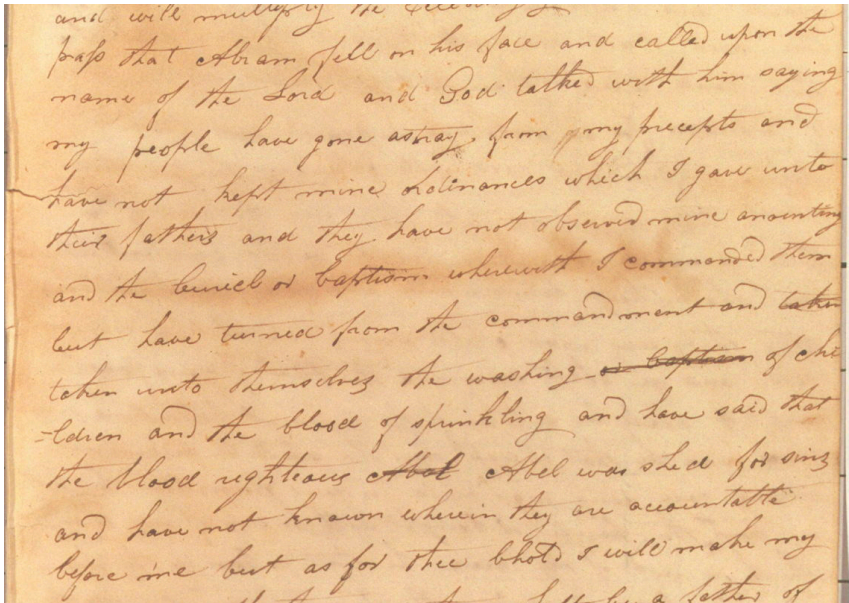 and will multiply the
pass that Abram fell on his face and called upon the
name of the Lord and God talked with him saying
my people have gone astray from my precepts and
have not kept mine ordinances which I gave unto
their fathers and they have not observed mine anointing
and the buriel or baptism wherewith I commanded them
but have turned from the commandment and taken
taken unto themselves the washing or baptism of chi
=ldren and the blood of sprinkling and have said that
the blood righteous Abel Abel was shed for sins
and have not known wherein they are accountable
before me but as for thee bhold I will make my
a father of